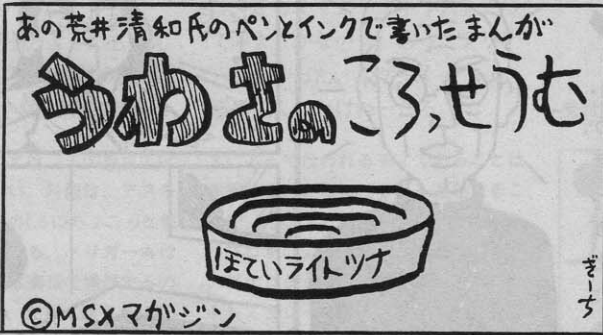 あの荒井清和氏のペンとインクで書いたまんが
うわさのころっせうむ
ほていライトツナ
ぎーち
©MSXマガジン